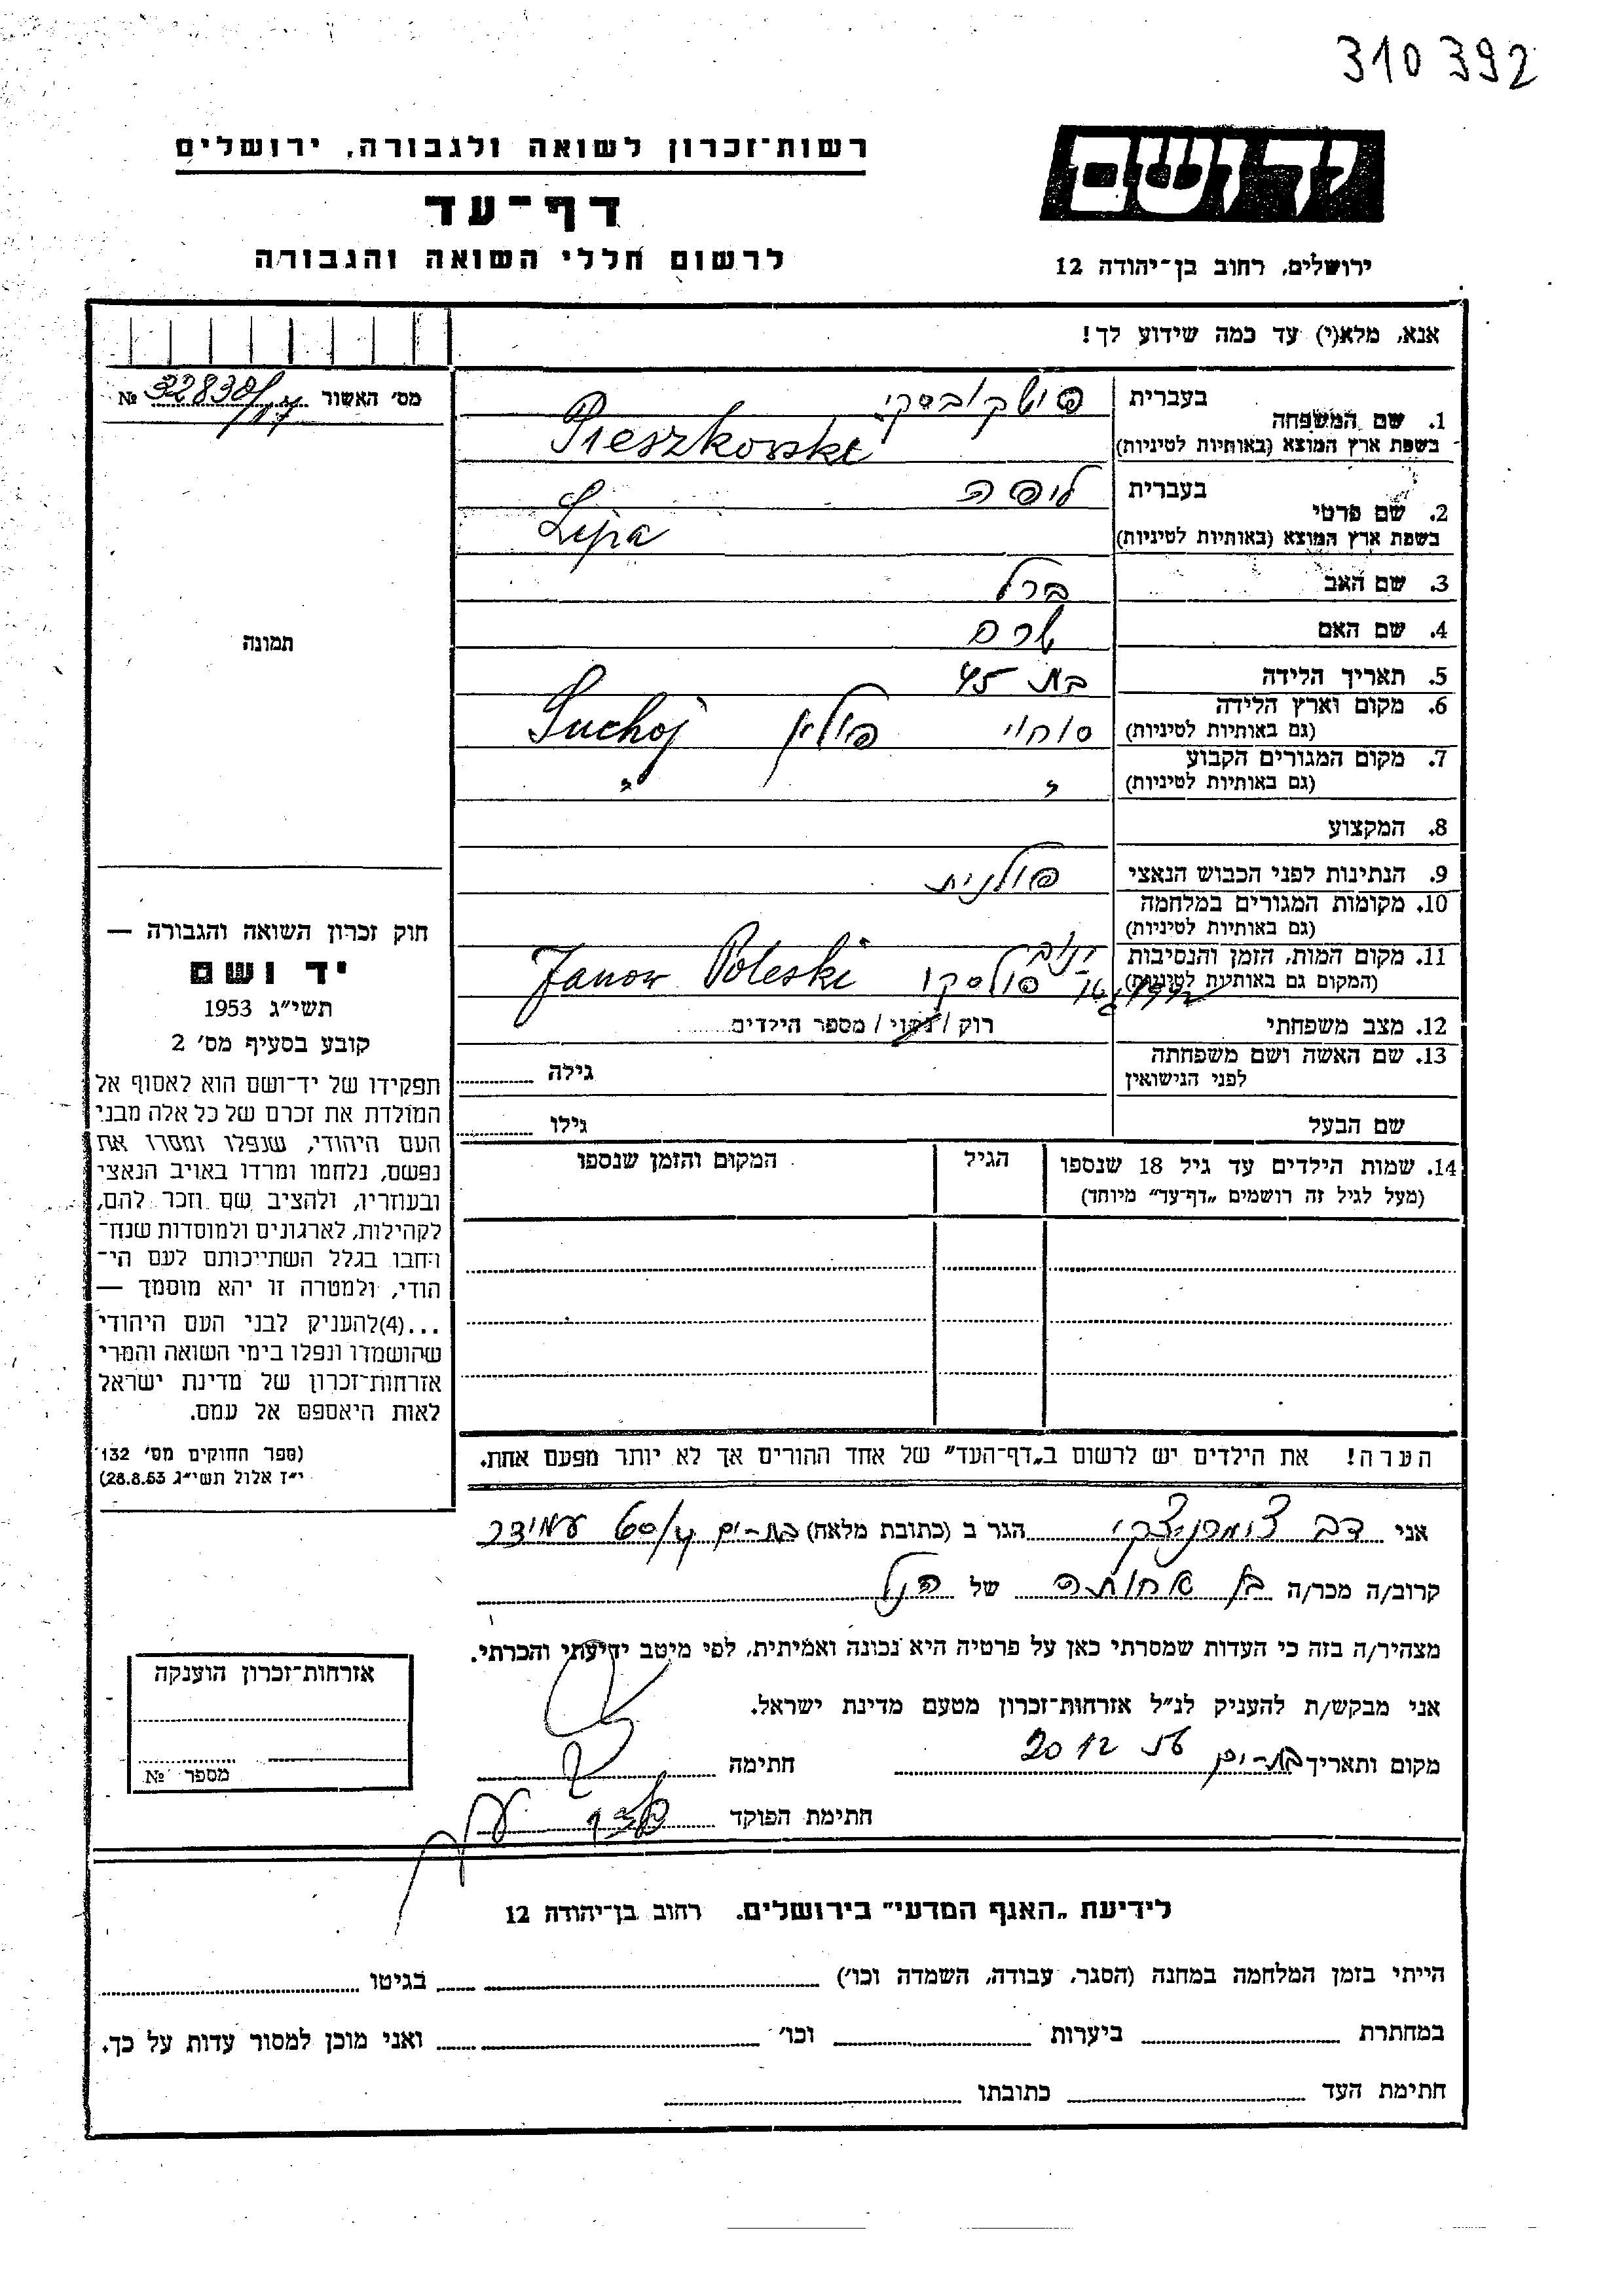 310392
רשות־זכרון לשואה ולגבורה, ירושלים
דף־עד
לרשום חללי השואה והגבורה
יד ושם
ירושלים, רחוב בן־יהודה 12
אנא, מלא(י) עד כמה שידוע לך!
מס' האשור № 32838/17
תמונה
1. שם המשפחה
בעברית
בשפת ארץ המוצא (באותיות לטיניות) Pieszkovski
2. שם פרטי
בעברית ליפה
בשפת ארץ המוצא (באותיות לטיניות) Lipa
3. שם האב ברל
4. שם האם
5. תאריך הלידה בת 45
6. מקום וארץ הלידה
(גם באותיות לטיניות) סוחוי פולין Suchoj
7. מקום המגורים הקבוע
(גם באותיות לטיניות) " "
8. המקצוע
9. הנתינות לפני הכבוש הנאצי פולנית
10. מקומות המגורים במלחמה
(גם באותיות לטיניות)
11. מקום המות, הזמן והנסיבות
(המקום גם באותיות לטיניות) ינוב פולסקי Janow Poleski
12. מצב משפחתי רוק / נשוי / מספר הילדים
13. שם האשה ושם משפחתה
לפני הנישואין גילה
שם הבעל גילו
14. שמות הילדים עד גיל 18 שנספו הגיל המקום והזמן שנספו
(מעל לגיל זה רושמים „דף־עד" מיוחד)
חוק זכרון השואה והגבורה —
יד ושם
תשי"ג 1953
קובע בסעיף מס' 2
תפקידו של יד־ושם הוא לאסוף אל
המולדת את זכרם של כל אלה מבני
העם היהודי, שנפלו ומסרו את
נפשם, נלחמו ומרדו באויב הנאצי
ובעוזריו, ולהציב שם וזכר להם,
לקהילות, לארגונים ולמוסדות שנח־
רבו בגלל השתייכותם לעם הי־
הודי, ולמטרה זו יהא מוסמך —
...(4)להעניק לבני העם היהודי
שהושמדו ונפלו בימי השואה והמרי
אזרחות־זכרון של מדינת ישראל
לאות היאספם אל עמם.
(ספר החוקים מס' 132
י"ז אלול תשי"ג 28.8.53)
הערה! את הילדים יש לרשום ב„דף־העד" של אחד ההורים אך לא יותר מפעם אחת.
אני דב הגר ב (כתובת מלאה) בת-ים עמידר
קרוב/ה מכר/ה בן אחותה של הנ"ל
מצהיר/ה בזה כי העדות שמסרתי כאן על פרטיה היא נכונה ואמיתית, לפי מיטב ידיעתי והכרתי.
אני מבקש/ת להעניק לנ"ל אזרחות־זכרון מטעם מדינת ישראל.
מקום ותאריך בת-ים 20 12 חתימה
חתימת הפוקד
אזרחות־זכרון הוענקה
מספר №
לידיעת „האגף המדעי" בירושלים. רחוב בן־יהודה 12
הייתי בזמן המלחמה במחנה (הסגר, עבודה, השמדה וכו') בגיטו
במחתרת ביערות וכו' ואני מוכן למסור עדות על כך.
חתימת העד כתובתו